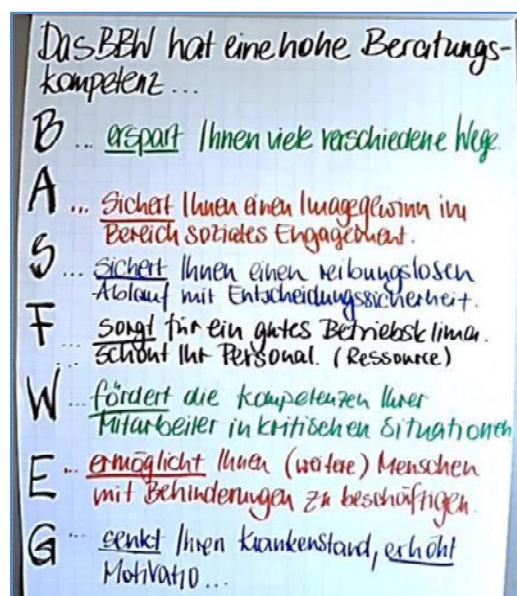 Das BBW hat eine hohe Beratungs-
kompetenz...
B ... erspart Ihnen viele verschiedene Wege.
A ... Sichert Ihnen einen Imagegewinn im
Bereich soziales Engagement.
S ... sichert Ihnen einen reibungslosen
Ablauf mit Entscheidungssicherheit.
F ... sorgt für ein gutes Betriebsklima.
... schont Ihr Personal. (Ressource)
W ... fördert die Kompetenzen Ihrer
Mitarbeiter in kritischen Situationen
E ... ermöglicht Ihnen (weitere) Menschen
mit Behinderungen zu beschäftigen.
G ... senkt Ihren Krankenstand, erhöht
Motivatio...